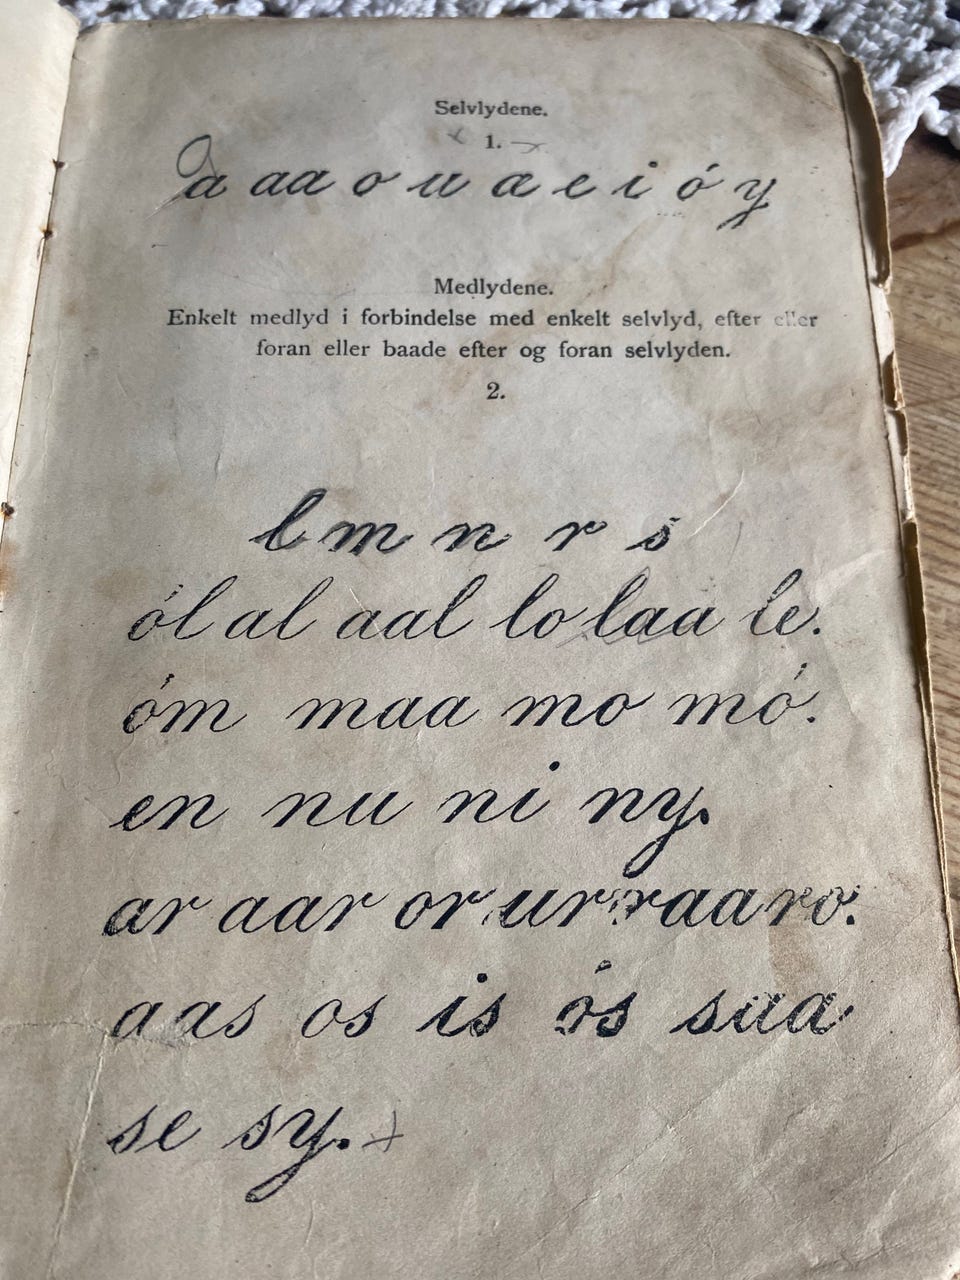 Selvlydene.
1.
a aa o u æ e i ó y
Medlydene.
Enkelt medlyd i forbindelse med enkelt selvlyd, efter eller
foran eller baade efter og foran selvlyden.
2.
l m n r s
ól al aal lo laa le.
óm maa mo mó.
en nu ni ny.
ar aar or ur raa ro.
aas os is ós saa
se sy.